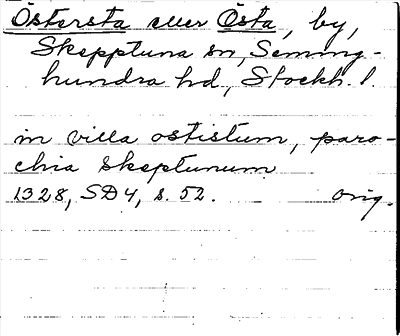 Östersta eller Östa, by,
Skepptuna sn, Seming-
hundra hd, Stockh. l.
in villa ostistum, paro-
chia Skeptunum
1328, SD4, s. 52. orig.